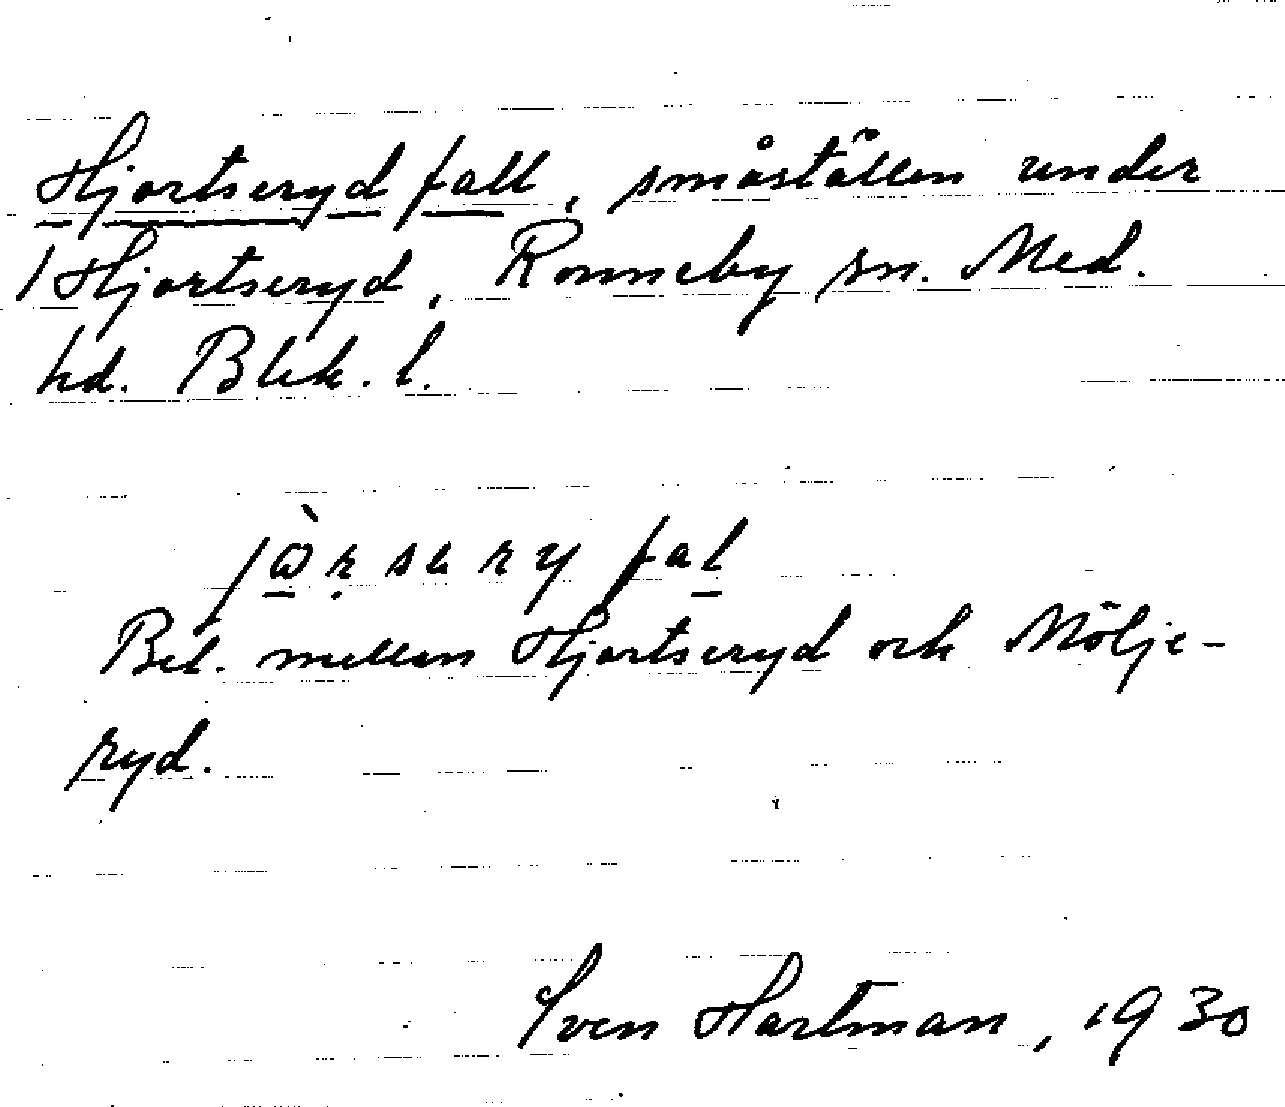 Hjortseryd fall, småställen under
/ Hjortseryd, Ronneby sn. Med.
hd. Blek. l.
jàṛsery fal
Bel. mellan Hjortseryd och Mölje-
ryd.
Sven Hartman, 1930